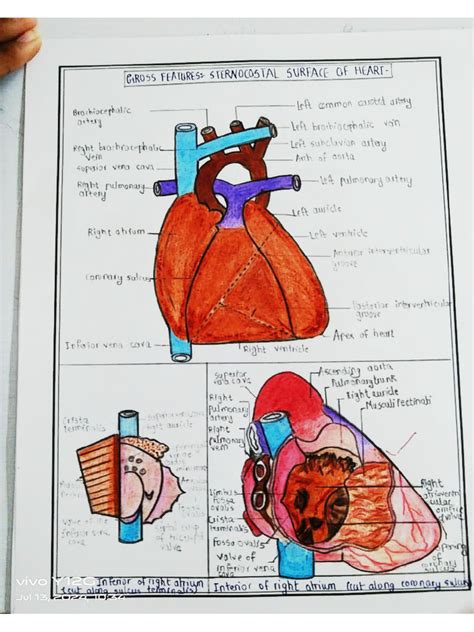 GROSS FEATURES: STERNOCOSTAL SURFACE OF HEART-
Brachiocephalic
artery
Left common carotid artery
Left brachiocephalic vein
Right brachiocephalic
vein
Left subclavian artery
superior vena cava
Arch of aorta
Right pulmonary
artery
Left pulmonary artery
Left auricle
Right atrium
Left ventricle
Anterior interventricular
groove
coronary sulcus
Posterior interventricular
groove
Apex of heart
Inferior vena cava
Right ventricle
superior
vena cava
Ascending aorta
Pulmonary trunk
Right auricle
Musculi Pectinati
Right
Pulmonary
artery
Right
pulmonary
vein
Crista
terminalis
Limbus
fossa
ovalis
Crista
terminalis
Fossa ovalis
valve of
inferior vena
cava
Right
orifice
valve
valve of the
inferior vena
cava
opening of
coronary
sulcus
Interior of right atrium
(cut along sulcus terminalis)
Interior of right atrium (cut along coronary sulcus
vivo Y12G
Jul 13, 2024